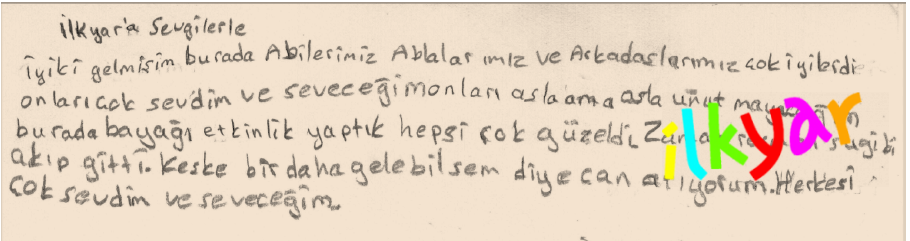 İlkyar'a Sevgilerle
iyiki gelmişim burada Abilerimiz Ablalar ımız ve Arkadaşlarımız çok iyilerdi
onları çok sevdim ve seveceğim onları asla ama asla unut
burada bayağı etkinlik yaptık hepsi çok güzeldi, gibi
akıp gitti. Keşke bir daha gelebilsem diye can atıyorum. Herkesi
çok sevdim ve seveceğim.
ilkyar